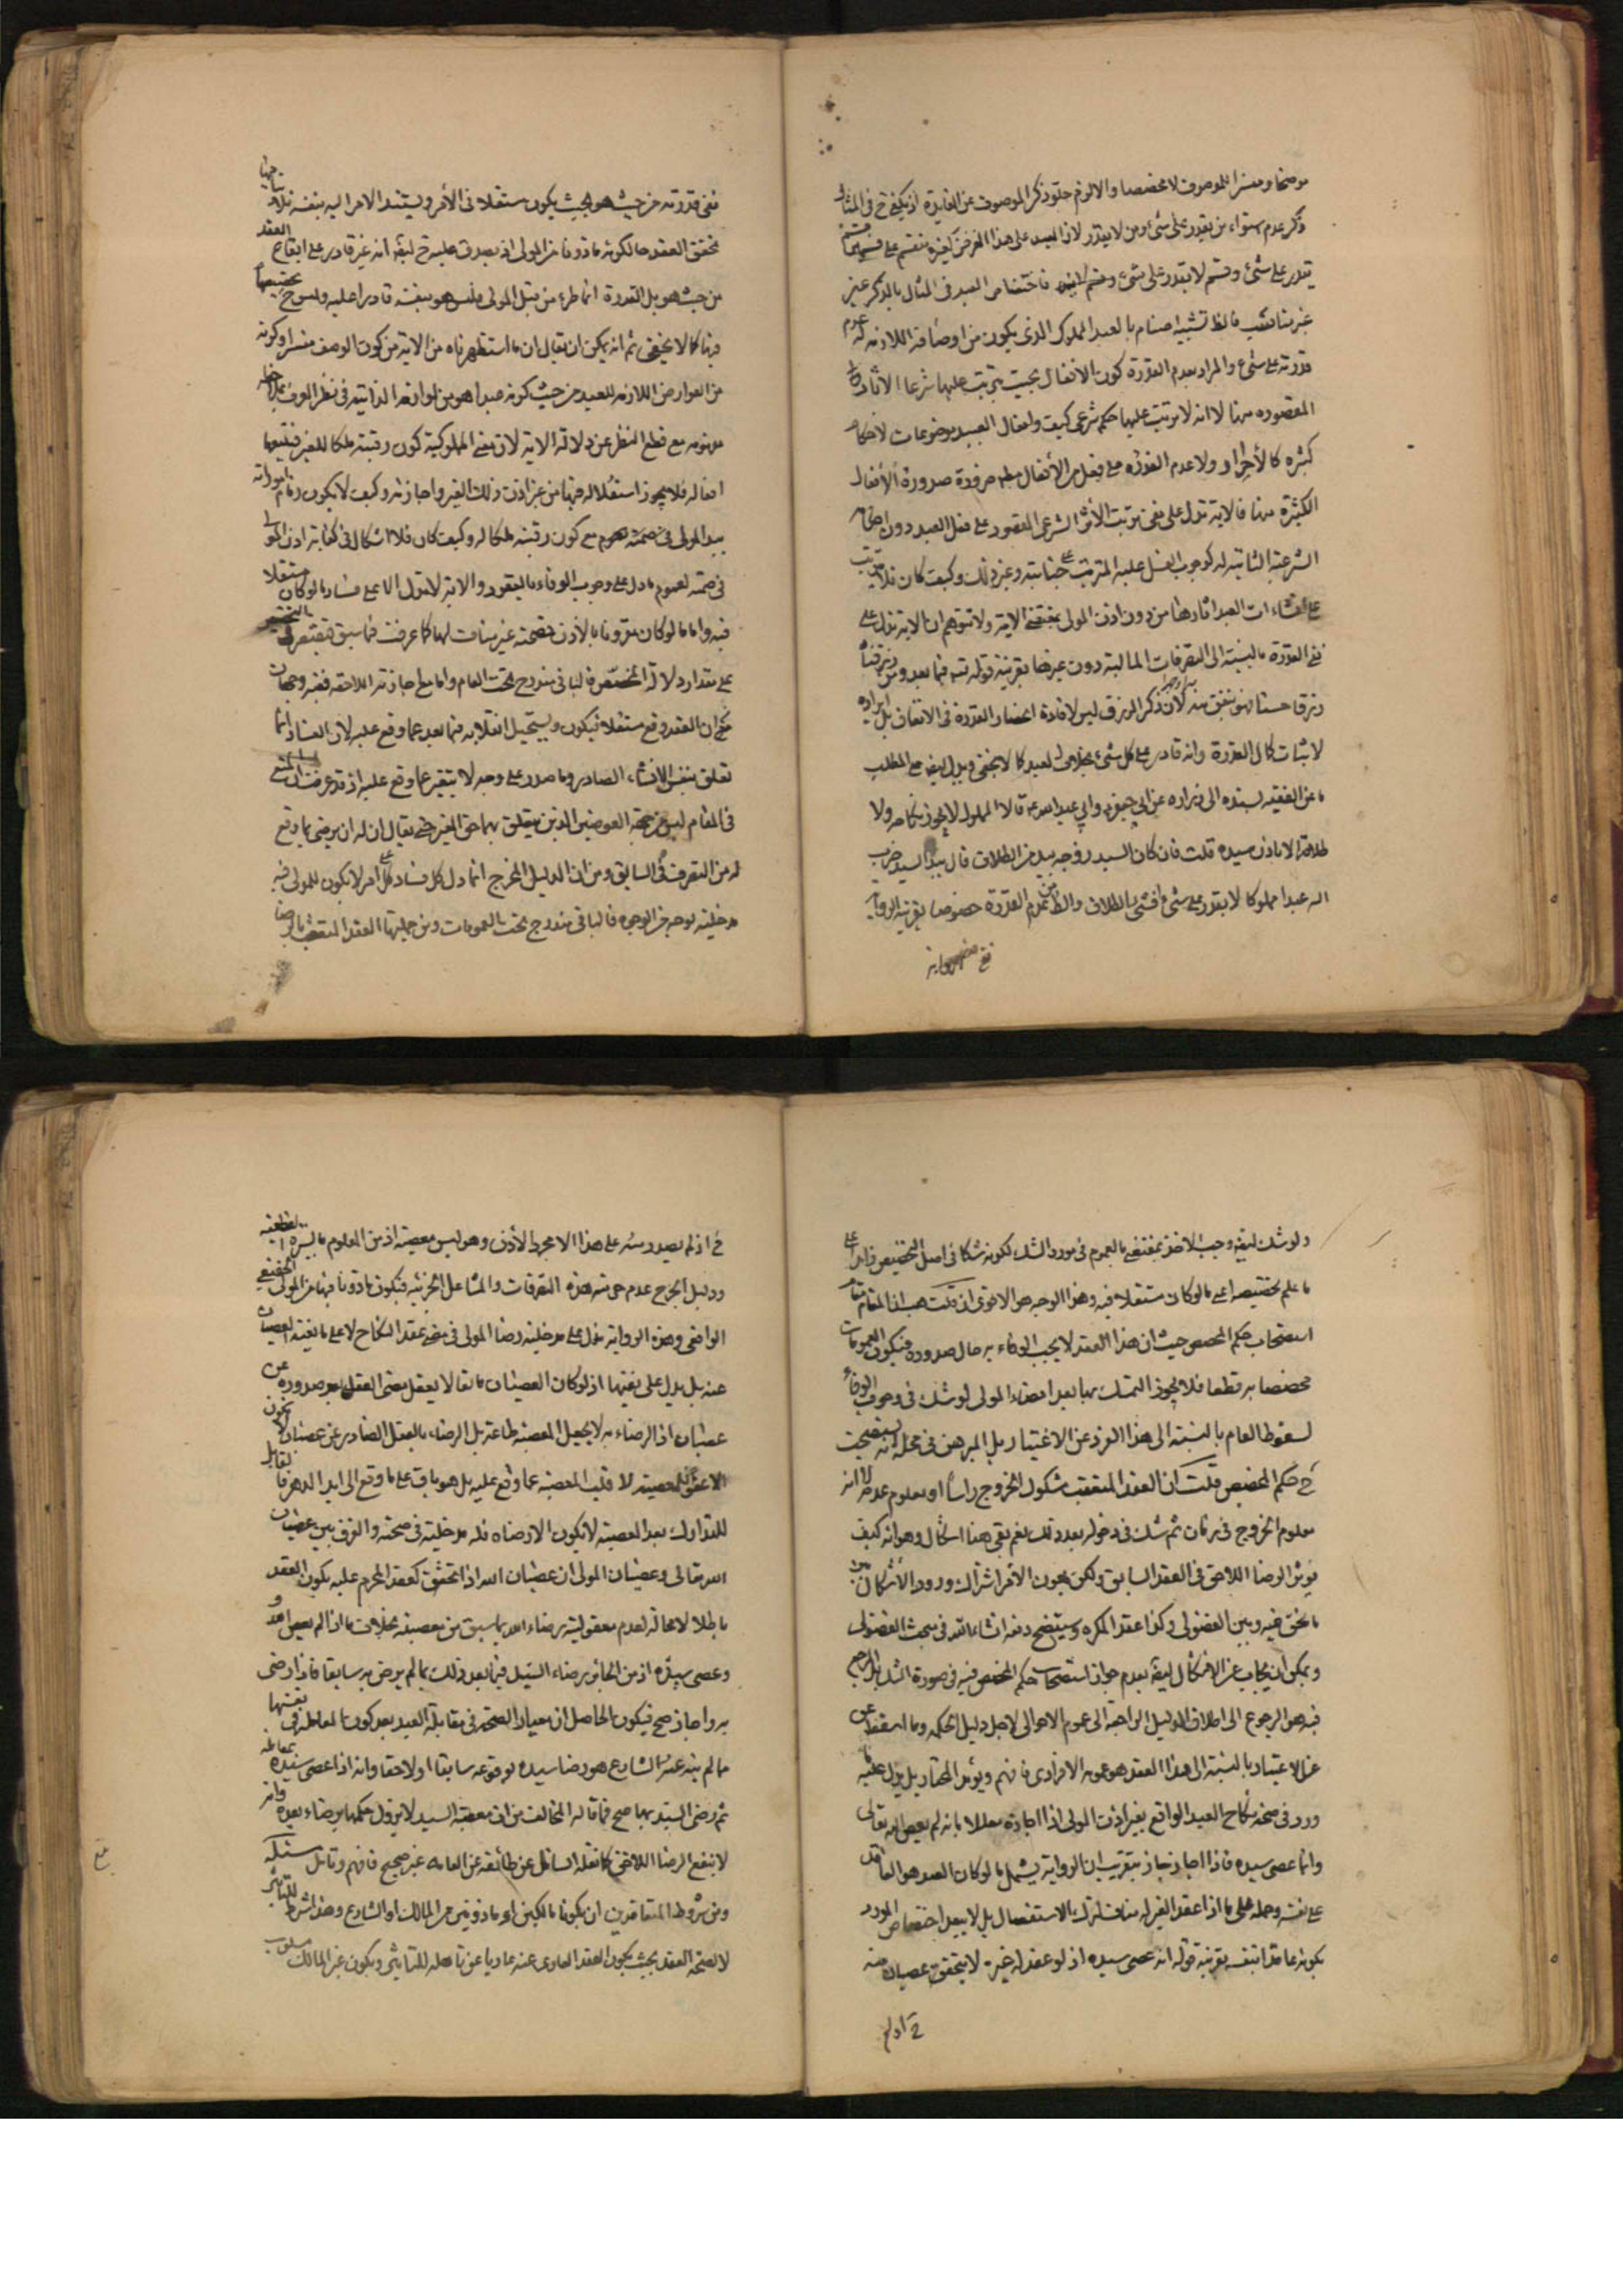 موضحا ومفسرا للموصوف لا مخصصا والا لزم خلو ذكر الموصوف عن الفايدة اذ يكفى ح فى المثال
ذكر عدم استواء من يقدر على شئ ومن لا يقدر لان العبد على هذا الفرض كغيره منقسم على قسمين قسم
يقدر على شئ وقسم لا يقدر على شئ فاختصاص العبد فى المثال بالذكر غير
مناسب فالظ تشبيه الاصنام بالعبد المملوك الذى يكون من اوصافه اللازمة له عدم
قدرته على شئ والمراد بعدم القدرة كون الافعال بحيث يترتب عليها شرعا الاثار
المقصوده منها لا انه لا يترتب عليها حكم شرعى كيف وافعال العبيد موضوعات لاحكام
كثيره كالأحرار ولا عدم القدرة على فعل من الأفعال ضرورة صدورة الأفعال
الكثيرة منها فالاية تدل على نفى ترتب الأثر الشرعى المقصود على فعل العبد دون احكام
الشرعية الثابتة له كوجوب الغسل عليه المترتب على جنابته وغير ذلك وكيف كان فلا يترتب
على انشاءات العبد اثارها من دون اذن المولى بمقتضى الاية ولا تتوهم ان الاية تدل على
نفى القدرة بالنسبة الى التصرفات المالية دون غيرها بقرينة قوله تع فيما بعد ومن رزقناه
رزقا حسنا فهو ينفق منه لأن ذكر الرزق ليس لافادة انحصار القدرة فى الانفاق بل
لاثبات كمال القدرة وانه قادر على كل شئ بخلاف العبد كما لا يخفى ويدل ايضا على المطلب
ما عن الفقيه بسنده الى زراره عن ابى جعفر وابى عبد الله ع قالا المملوك لا يجوز نكاحه ولا
طلاقه الا باذن سيده قلت فان كان السيد زوجه بيد من الطلاق قال بيد السيد ضرب
الله عبدا مملوكا لا يقدر على شئ افشئ الطلاق والظ من عدم القدرة خصوصا بقرينة الرواية
نفى
نفى قدرته من حيث هو بحيث يكون مستقلا فى الأمر ويستند الامر اليه بنفسه فلا
تحقق العقد حالكونه ماذونا من المولى اذ يصدق عليه ح ايضا انه غير قادر على ايقاع العقد
من حيث هو بل القدرة انما طرء من قبل المولى وليس هو بنفسه قادرا عليه
فيها كما لا يخفى ثم انه يمكن ان يقال ان ما استظهرناه من الاية من كون الوصف مفسرا وكونه
من العوارض اللازمه للعبد من حيث كونه عبدا هو من لوازمه الذاتية فى نظر العرف
مع قطع النظر عن دلالة الاية لان معنى المملوكية كون رقبته ملكا للغير فيتبعها
افعاله فلا يجوز استقلاله فيها من غير اذن ذلك الغير واجازته وكيف لا يكون زمام اموراته
بيد المولى مع كون رقبته ملكا له وكيف كان فلا اشكال فى كفاية اذن المولى
فى صحته لعموم ما دل على وجوب الوفاء بالعقود والاية لا تدل الا على فساد ما لو كان مستقلا
فيه واما ما لو كان مقرونا بالأذن فصحته غير مناف لها كما عرفت فيما سبق فيقتصر فى التخصيص
على مقدار دلالة المخصص فالباقى مندرج تحت العام واما مع اجازته اللاحقه ففيه وجهان
من ان العقد وقع مستقلا فيكون ويستحيل انقلابه فيما بعد عما وقع عليه لان الفساد انما
تعلق بنفس الانشاء الصادر وما صدر على وجه لا يتغير عما وقع عليه اذ قد عرفت ان المنع
فى المقام ليس من جهة العوضين الذين يتعلق بهما حق الغير حتى يقال ان له ان يرضى بما وقع
له من التصرف فى السابق ومن ان الدليل المخرج انما دل على فساد كل امر لا يكون للمولى فيه
مدخليته بوجه من الوجوه فالباقى مندرج تحت العمومات ومن جملتها العقد المتعقب بالرضا
ولو شك ايضا وجب الاخذ بمقتضى العموم فى مورد الشك لكونه شكا فى اصل التخصيص زايدا على
ما علم تخصيصه اعنى ما لو كان مستقلا فيه وهذا الوجه هو الاقوى ان قلت هذا المقام مقام
استصحاب حكم المخصص حيث ان هذا العقد لا يجب الوفاء به حال صدوره فيكون العمومات
مخصصا به قطعا فلا يجوز التمسك بها بعد امضاء المولى لو شك فى وجوب الوفاء
لسقوط العام بالنسبة الى هذا الفرد عن الاعتبار بل المبرهن فى محله انه يستصحب
ح حكم المخصص قلت ان العقد المتعقب مشكوك الخروج رأسا او معلوم عدمه لا انه
معلوم الخروج فى زمان ثم شك فى دخوله بعد ذلك نعم يبقى هنا اشكال وهو انه كيف
يؤثر الرضا اللاحق فى العقد السابق ولكن يهون الأمر اشتراك ورود الأشكال بين
ما نحن فيه وبين الفضولى وكذا عقد المكره وسيتضح دفعه انشاء الله فى مبحث الفضولى
ويمكن ان يجاب عن الاشكال ايضا بعدم جواز استصحاب حكم المخصص فيه فى صورة الشك بل المرجع
فيه هو الرجوع الى اطلاق الدليل الراجعة الى عموم الاحوالى لاجل دليل الحكمه وما اسقط عن
عن الاعتبار بالنسبة الى هذا العقد هو عمومه الافرادى فافهم ويؤيد المختار بل يدل عليه ما
ورد فى صحة نكاح العبد الواقع بغير اذن المولى اذا اجازه معللا بانه لم يعص الله تعالى
وانما عصى سيده فاذا اجاز جاز بتقريب ان الرواية يشمل ما لو كان العبد هو العاقد
على نفسه وحمله على ما اذا عقد الغير له مناف لترك الاستفصال بل لا يبعد اختصاص المورد
بكونه عاقدا بنفسه بقرينة قوله انه عصى سيده اذ لو عقد له غيره لا يتحقق عصيان منه
ح اذ لم
ح اذ لم يصدر منه على هذا الا مجرد الأذن وهو ليس معصية اذ من المعلوم بالسيرة القطعية
ودليل الحرج عدم حرمة هذه التصرفات والمشاغل الجزئية فيكون ماذونا فيها من المولى الحقيقى
الواقعى وهذه الرواية تدل على مدخلية رضا المولى فى صحة عقد النكاح لا على مانعية العصيان
عنه بل يدل على نفيها اذ لو كان العصيان مانعا لا يعقل مضى العقد بعد صدوره عن
عصيان اذ الرضاء به لا يجعل المعصية طاعة بل الرضاء بالفعل الصادر عن عصيان لا يكون
الا عفوا للمعصية لا قلب المعصية عما وقع عليه بل هو باق على ما وقع الى ابد الدهر
للتدارك بعد المعصية لا يكون الا رضاه فله مدخلية فى صحته والفرق بين عصيان
الله تعالى وعصيان المولى ان عصيان الله اذا تحقق كعقد المحرم عليه يكون العقد
باطلا لا محالة لعدم معقولية رضاء الله بما سبق من معصيته بخلاف ما اذا لم يعص الله و
وعصى سيده اذ من الجائز رضاء السيد فيما بعد ذلك بما لم يرض به سابقا فاذا رضى
به واجاز صح فيكون الحاصل ان معيار الصحة فى مقابلة العبد بعد كون المعاملة فى نفسها
مما لم ينه عنه الشارع هو رضا سيده بوقوعه سابقا او لاحقا وانه اذا عصى سيده بمعاملة
ثم رضى السيد بها صح فما قاله المخالف من ان معصية السيد لا يزول حكمها برضاه بعده وانه
لا ينفع الرضا اللاحق كما نقله السائل عن طائفة من العامه غير صحيح فافهم وتامل مسئلة
ومن شروط المتعاقدين ان يكونا مالكين او ماذونين من المالك او الشارع وهذا شرط للتاثير
لا لصحة العقد بحيث يكون العقد العارى عنه عاريا عن تاهله للتاثير ويكون غير المالك مسلوب